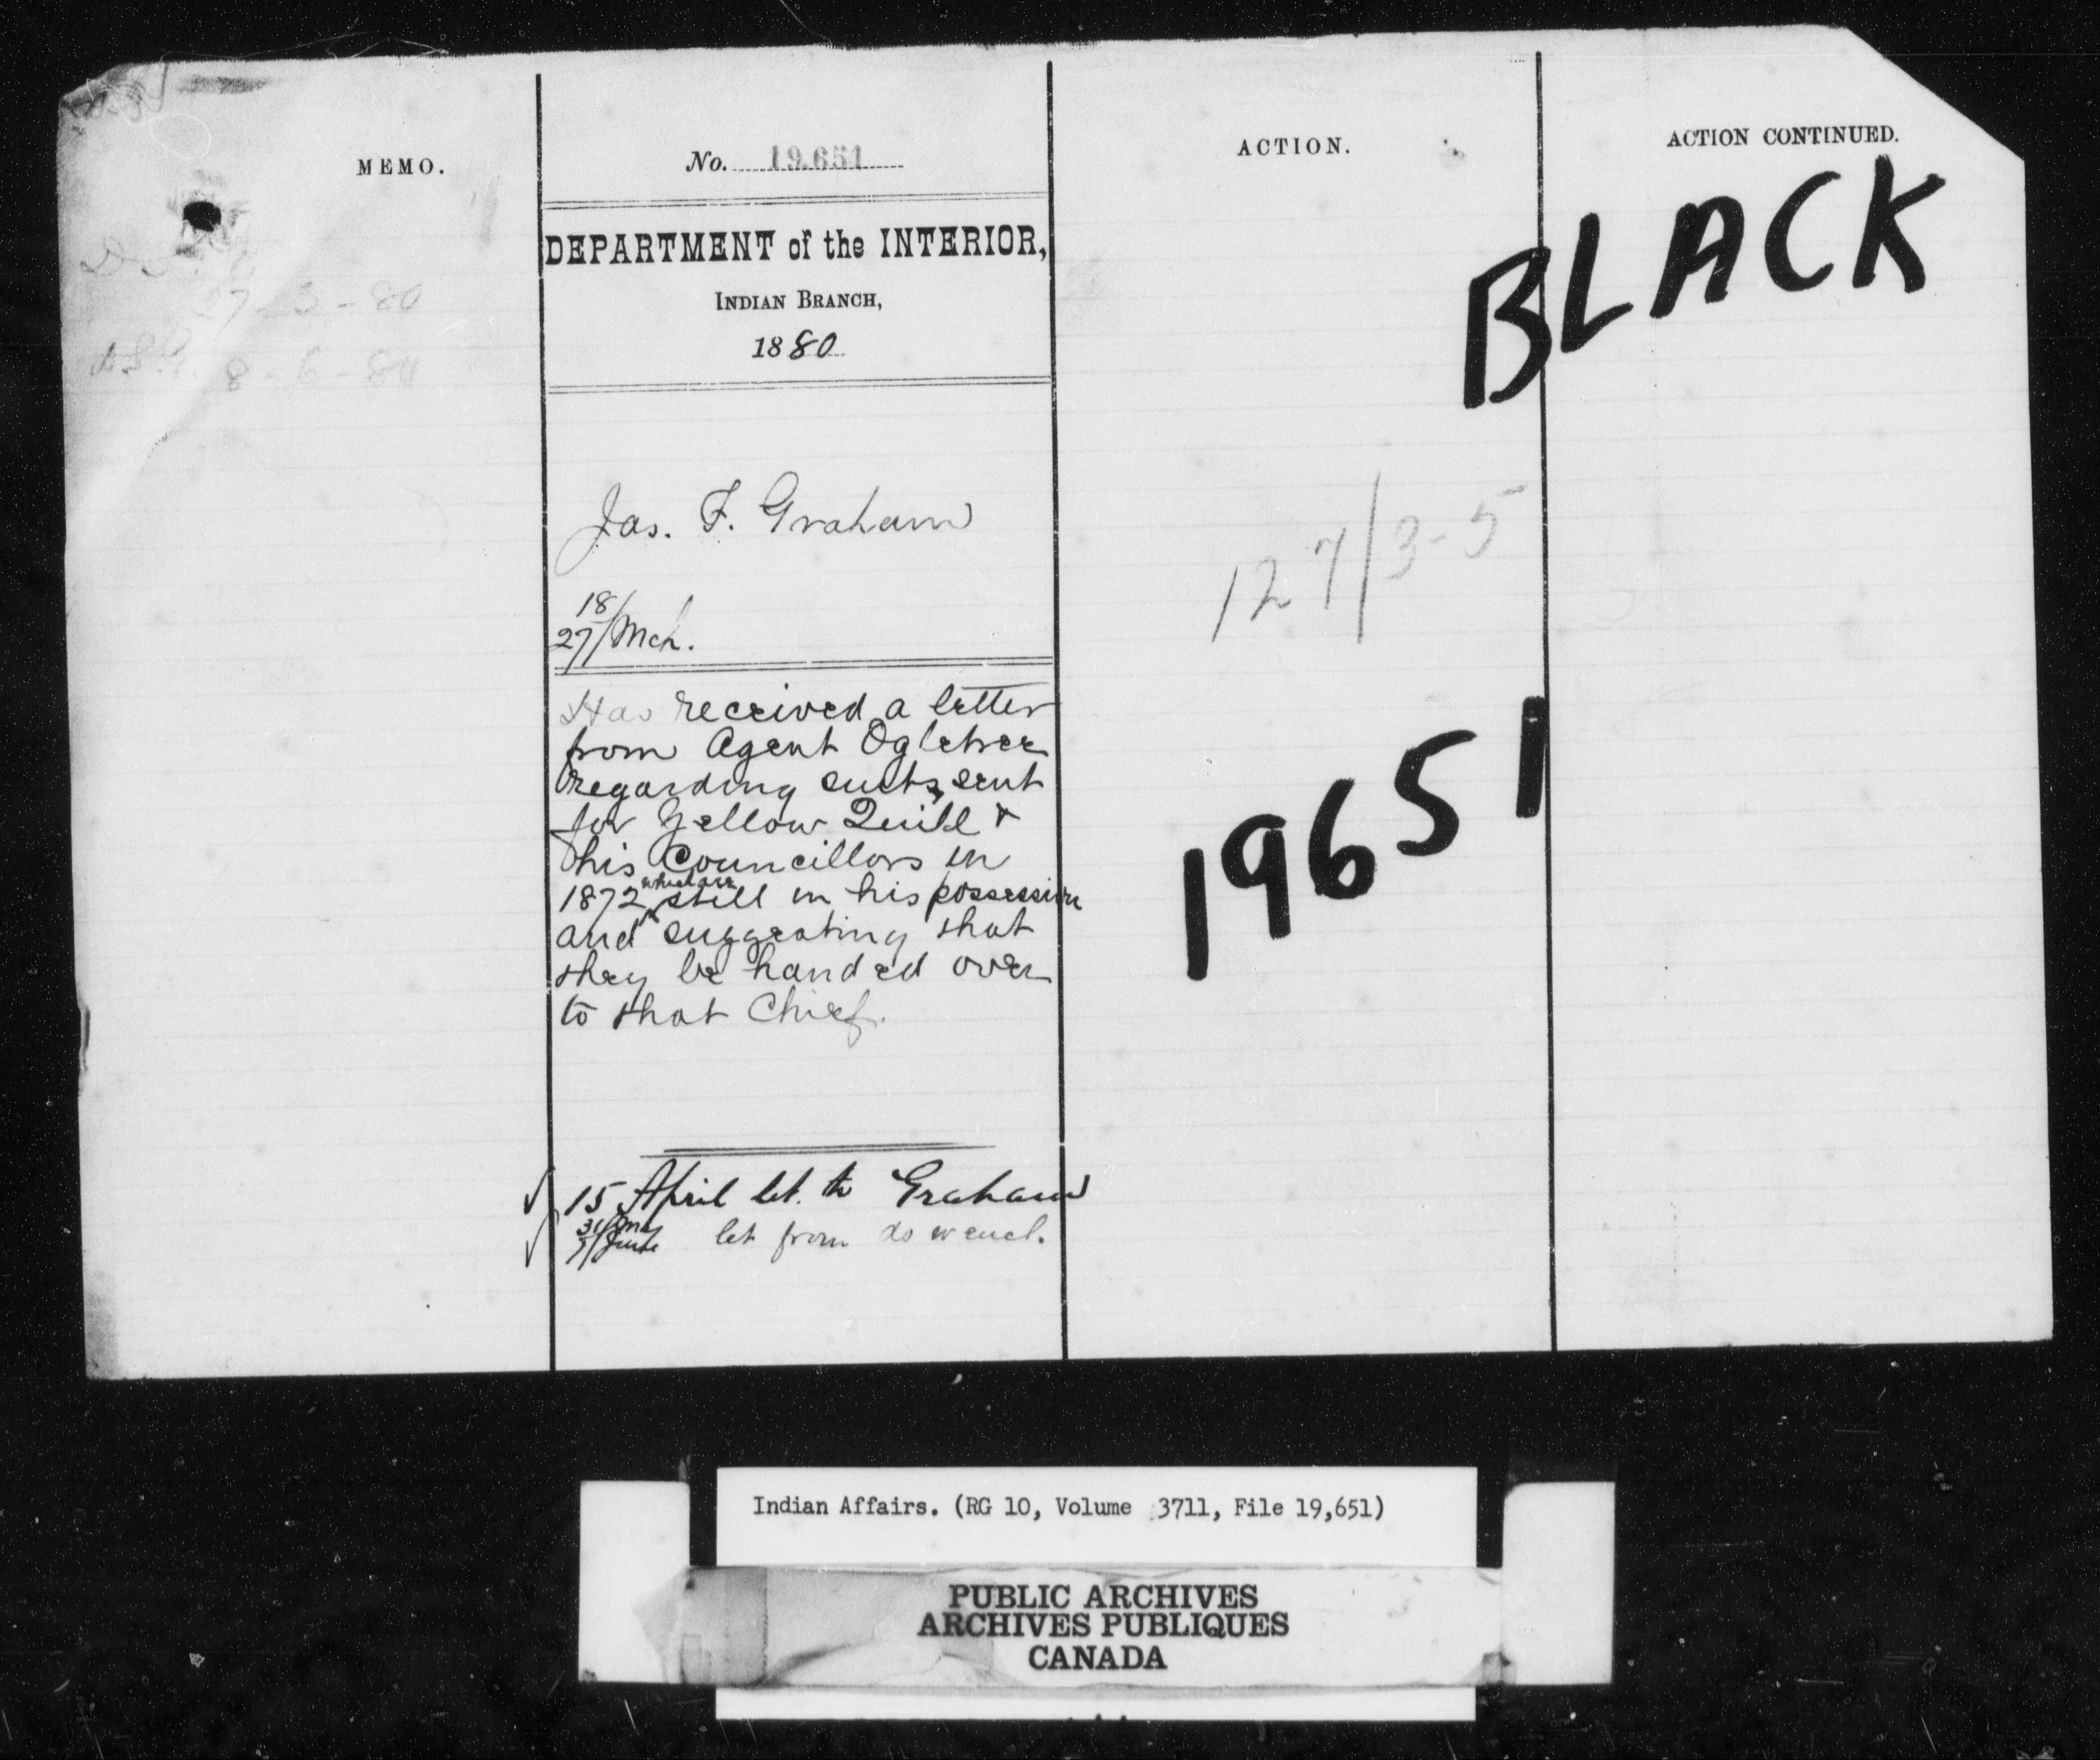 MEMO.
27-3-80
8-6-80
No. 19.651
DEPARTMENT of the INTERIOR,
INDIAN BRANCH,
1880
Jas. F. Graham
18/
27/Mch.
Has received a letter
from Agent Ogletree
regarding suits sent
for Yellow Quill &
his Councillors in
which are
1872 still in his possession
and suggesting that
they be handed over
to that Chief.
15 April let. to Graham
31/May
7/June let from do w encl.
ACTION.
127/3-5
19651
ACTION CONTINUED.
BLACK
Indian Affairs. (RG 10, Volume 3711, File 19,651)
PUBLIC ARCHIVES
ARCHIVES PUBLIQUES
CANADA